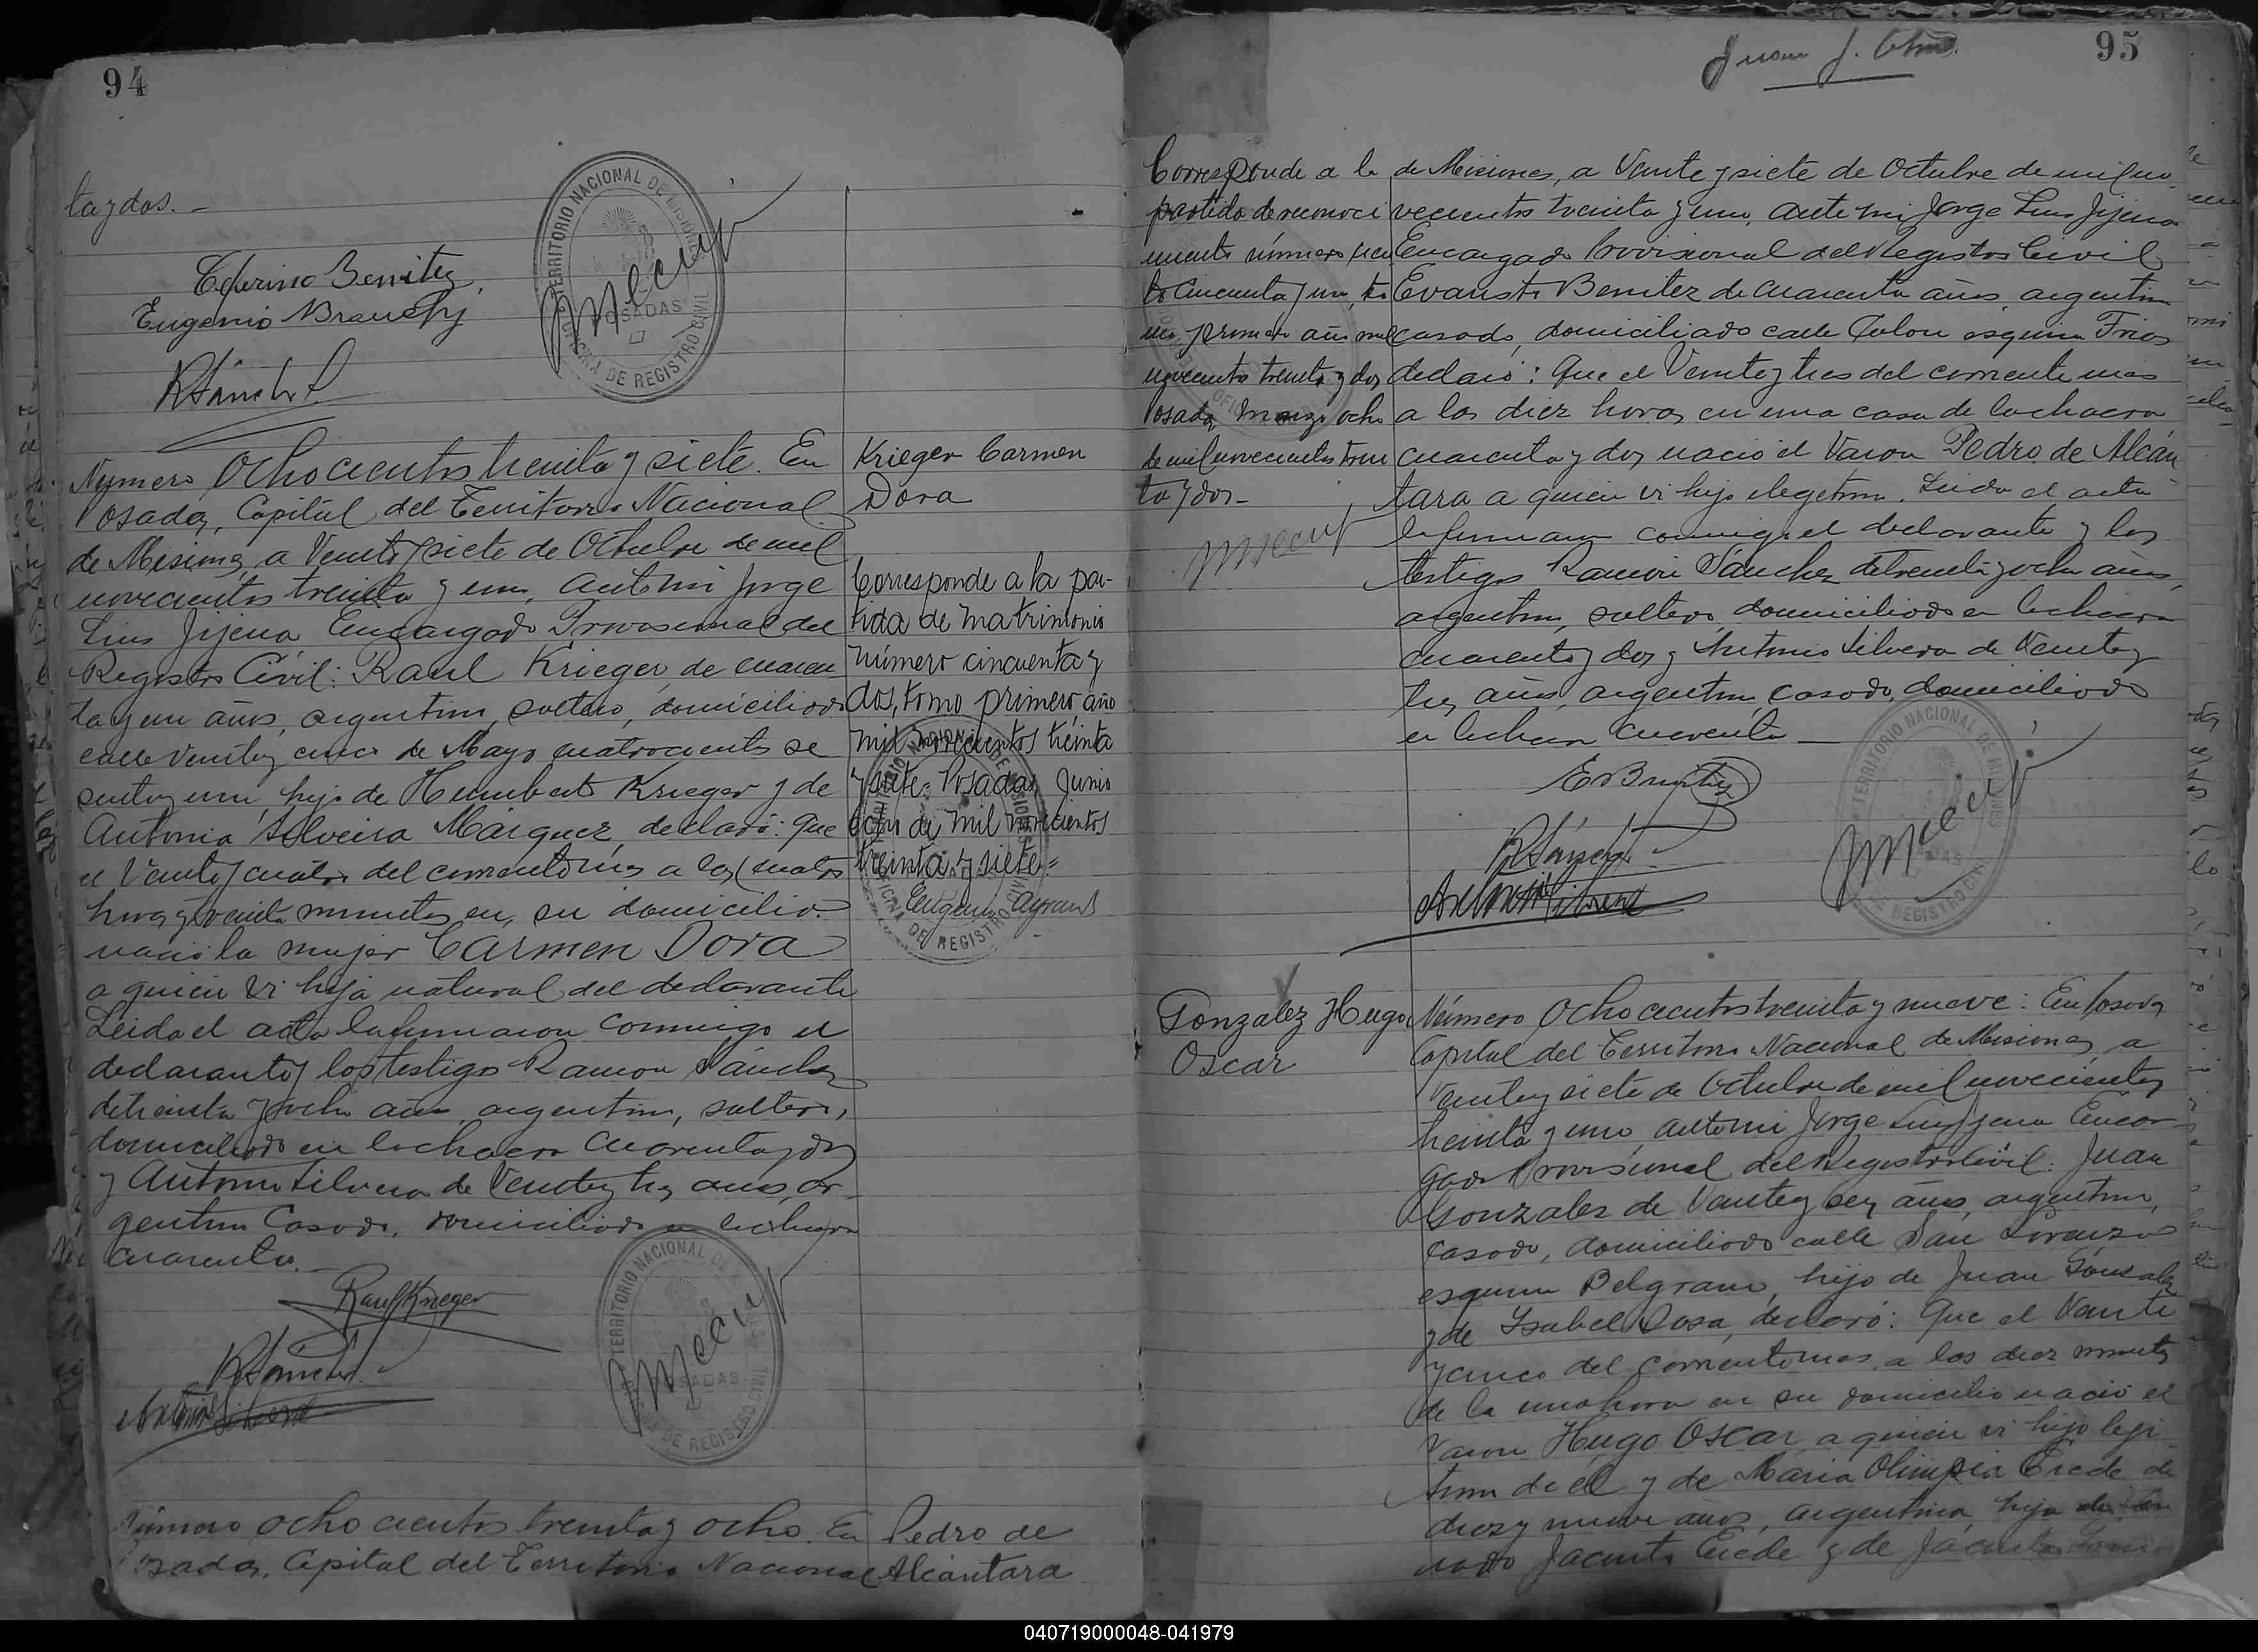 94
ta y dos. -
TERRITORIO NACIONAL DE MISIONES
POSADAS
OFICINA DE REGISTRO CIVIL
Ceferino Benitez
Eugenio
RSánchez
Krieger Carmen
Dora
Numero Ochocientos treinta y siete. En
Posadas, Capital del Territorio Nacional
de Misiones, a Veinte y siete de Octubre de mil
novecientos treinta y uno, ante mi Jorge
Luis Jijena Encargado Provisional del
Registro Civil: Raul Krieger, de cuaren
ta y un años, argentino, soltero, domiciliado
calle Veinte y cinco de Mayo cuatrocientos se
senta y uno, hijo de Humberto Krieger y de
Antonia Silveira Márquez, declaró: Que
el Veinte y cuatro del corriente mes a las cuatro
horas y veinte minutos, en su domicilio
nació la mujer Carmen Dora
a quien vi hija natural del declarante
Leida el acta la firmaron conmigo el
declarante y los testigos Ramon Sánchez
de treinta y ocho años, argentino, soltero,
domiciliado en la chacra cuarenta y dos
y Antonio Silvera de Veinte y tres años, ar-
gentino Casado, domiciliado en la chacra
cuarenta. -
Corresponde a la par-
tida de matrimonio
número cincuenta y
dos, tomo primero, año
mil novecientos treinta
y siete= Posadas, Junio
ocho de mil novecientos
treinta y siete=
TERRITORIO NACIONAL DE MISIONES
OFICINA DE REGISTRO CIVIL
Raul Krieger
RSánchez
Antonio Silvera
TERRITORIO NACIONAL DE MISIONES
POSADAS
OFICINA DE REGISTRO CIVIL
Pedro de
Alcántara
Número ocho cientos treinta y ocho. En
Posadas, Capital del Territorio Nacional
95
Juan J.
Corresponde a la
partida de reconoci
miento número cien
to cincuenta y uno, to
mo primero año mil
novecientos treinta y dos
Posadas, Marzo ocho
de mil novecientos trein
ta y dos-
de Misiones, a Veinte y siete de Octubre de mil no
vecientos treinta y uno, ante mi Jorge Luis Jijena
Encargado Provisional del Registro Civil
Evaristo Benitez de cuarenta años, argentino
casado, domiciliado calle Colon esquina Frias
declaró: Que el Veinte y tres del corriente mes
a las diez horas, en una casa de la chacra
cuarenta y dos nació el Varon Pedro de Alcán
tara a quien vi hijo ilegitimo. Leida el acta
la firmaron conmigo el declarante y los
testigos Ramon Sánchez de treinta y ocho años,
argentino, soltero, domiciliado en la chacra
cuarenta y dos y Antonio Silvera de Veinte y
tres años, argentino, casado, domiciliado
en la chacra cuarenta —
EBenitez
RSánchez
Antonio Silvera
TERRITORIO NACIONAL DE MISIONES
POSADAS
OFICINA DE REGISTRO CIVIL
Gonzalez Hugo
Oscar
Número Ochocientos treinta y nueve: En Posadas
Capital del Territorio Nacional de Misiones, a
Veinte y siete de Octubre de mil novecientos
treinta y uno, ante mi Jorge Luis Jijena Encar-
gado Provisional del Registro Civil: Juan
Gonzalez de Veinte y seis años, argentino,
casado, domiciliado calle San Lorenzo
esquina Belgrano, hijo de Juan Gonzalez
y de Ysabel Sosa, declaró: Que el Veinte
y cinco del corriente mes, a los diez minutos
de la una hora en su domicilio nació el
Varon Hugo Oscar, a quien vi hijo legi
timo de él y de Maria Olimpia Erede de
diez y nueve años, argentina, hija de
nado Jacinto Erede y de Jacinta
040719000048-041979